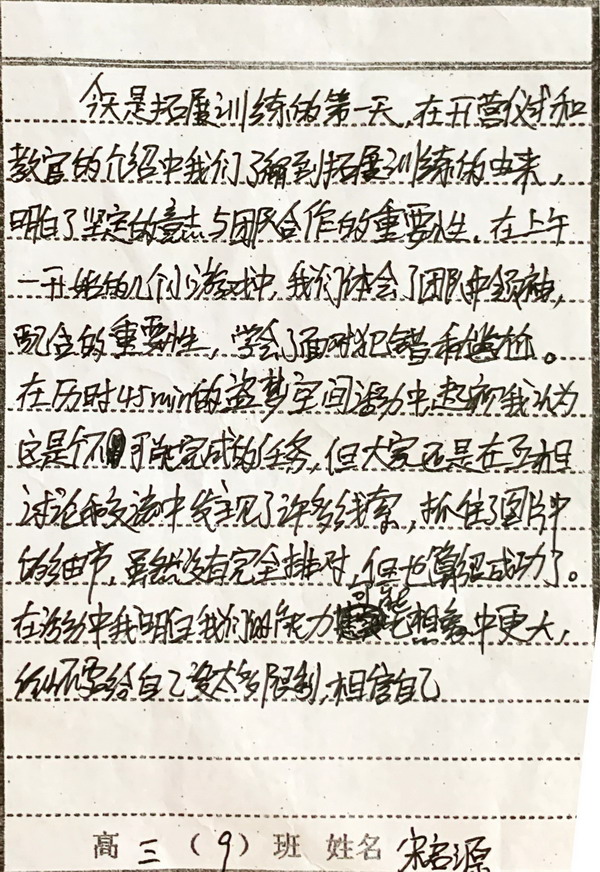 今天是拓展训练的第一天,在开营仪式和
教官的介绍中我们了解到拓展训练的由来,
明白了坚定的意志与团队合作的重要性。在上午
一开始的几个小游戏中,我们体会了团队中领袖,
配合的重要性,学会了面对犯错和尴尬。
在历时45min的盗梦空间活动中,起初我认为
这是个不可能完成的任务,但大家还是在互相
讨论和交谈中发现了许多线索,抓住了图片中
的细节,虽然没有完全排对,但也算很成功了。
在活动中我明白我们的能力可能比想象中更大,
所以不要给自己设太多限制,相信自己
高三(9)班 姓名 宋启源